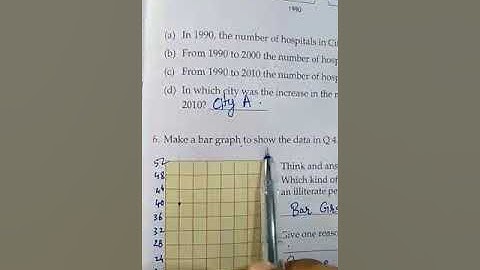 1990
(a) In 1990, the number of hospitals in
(b) From 1990 to 2000 the number of
(c) From 1990 to 2010 the number of
(d) In which city was the increase in the
2010? City A.
6. Make a bar graph to show the data in Q 4.
Think and
52
Which kind of
48
an illiterate
44
40
Bar
36
32
Give one
28
24